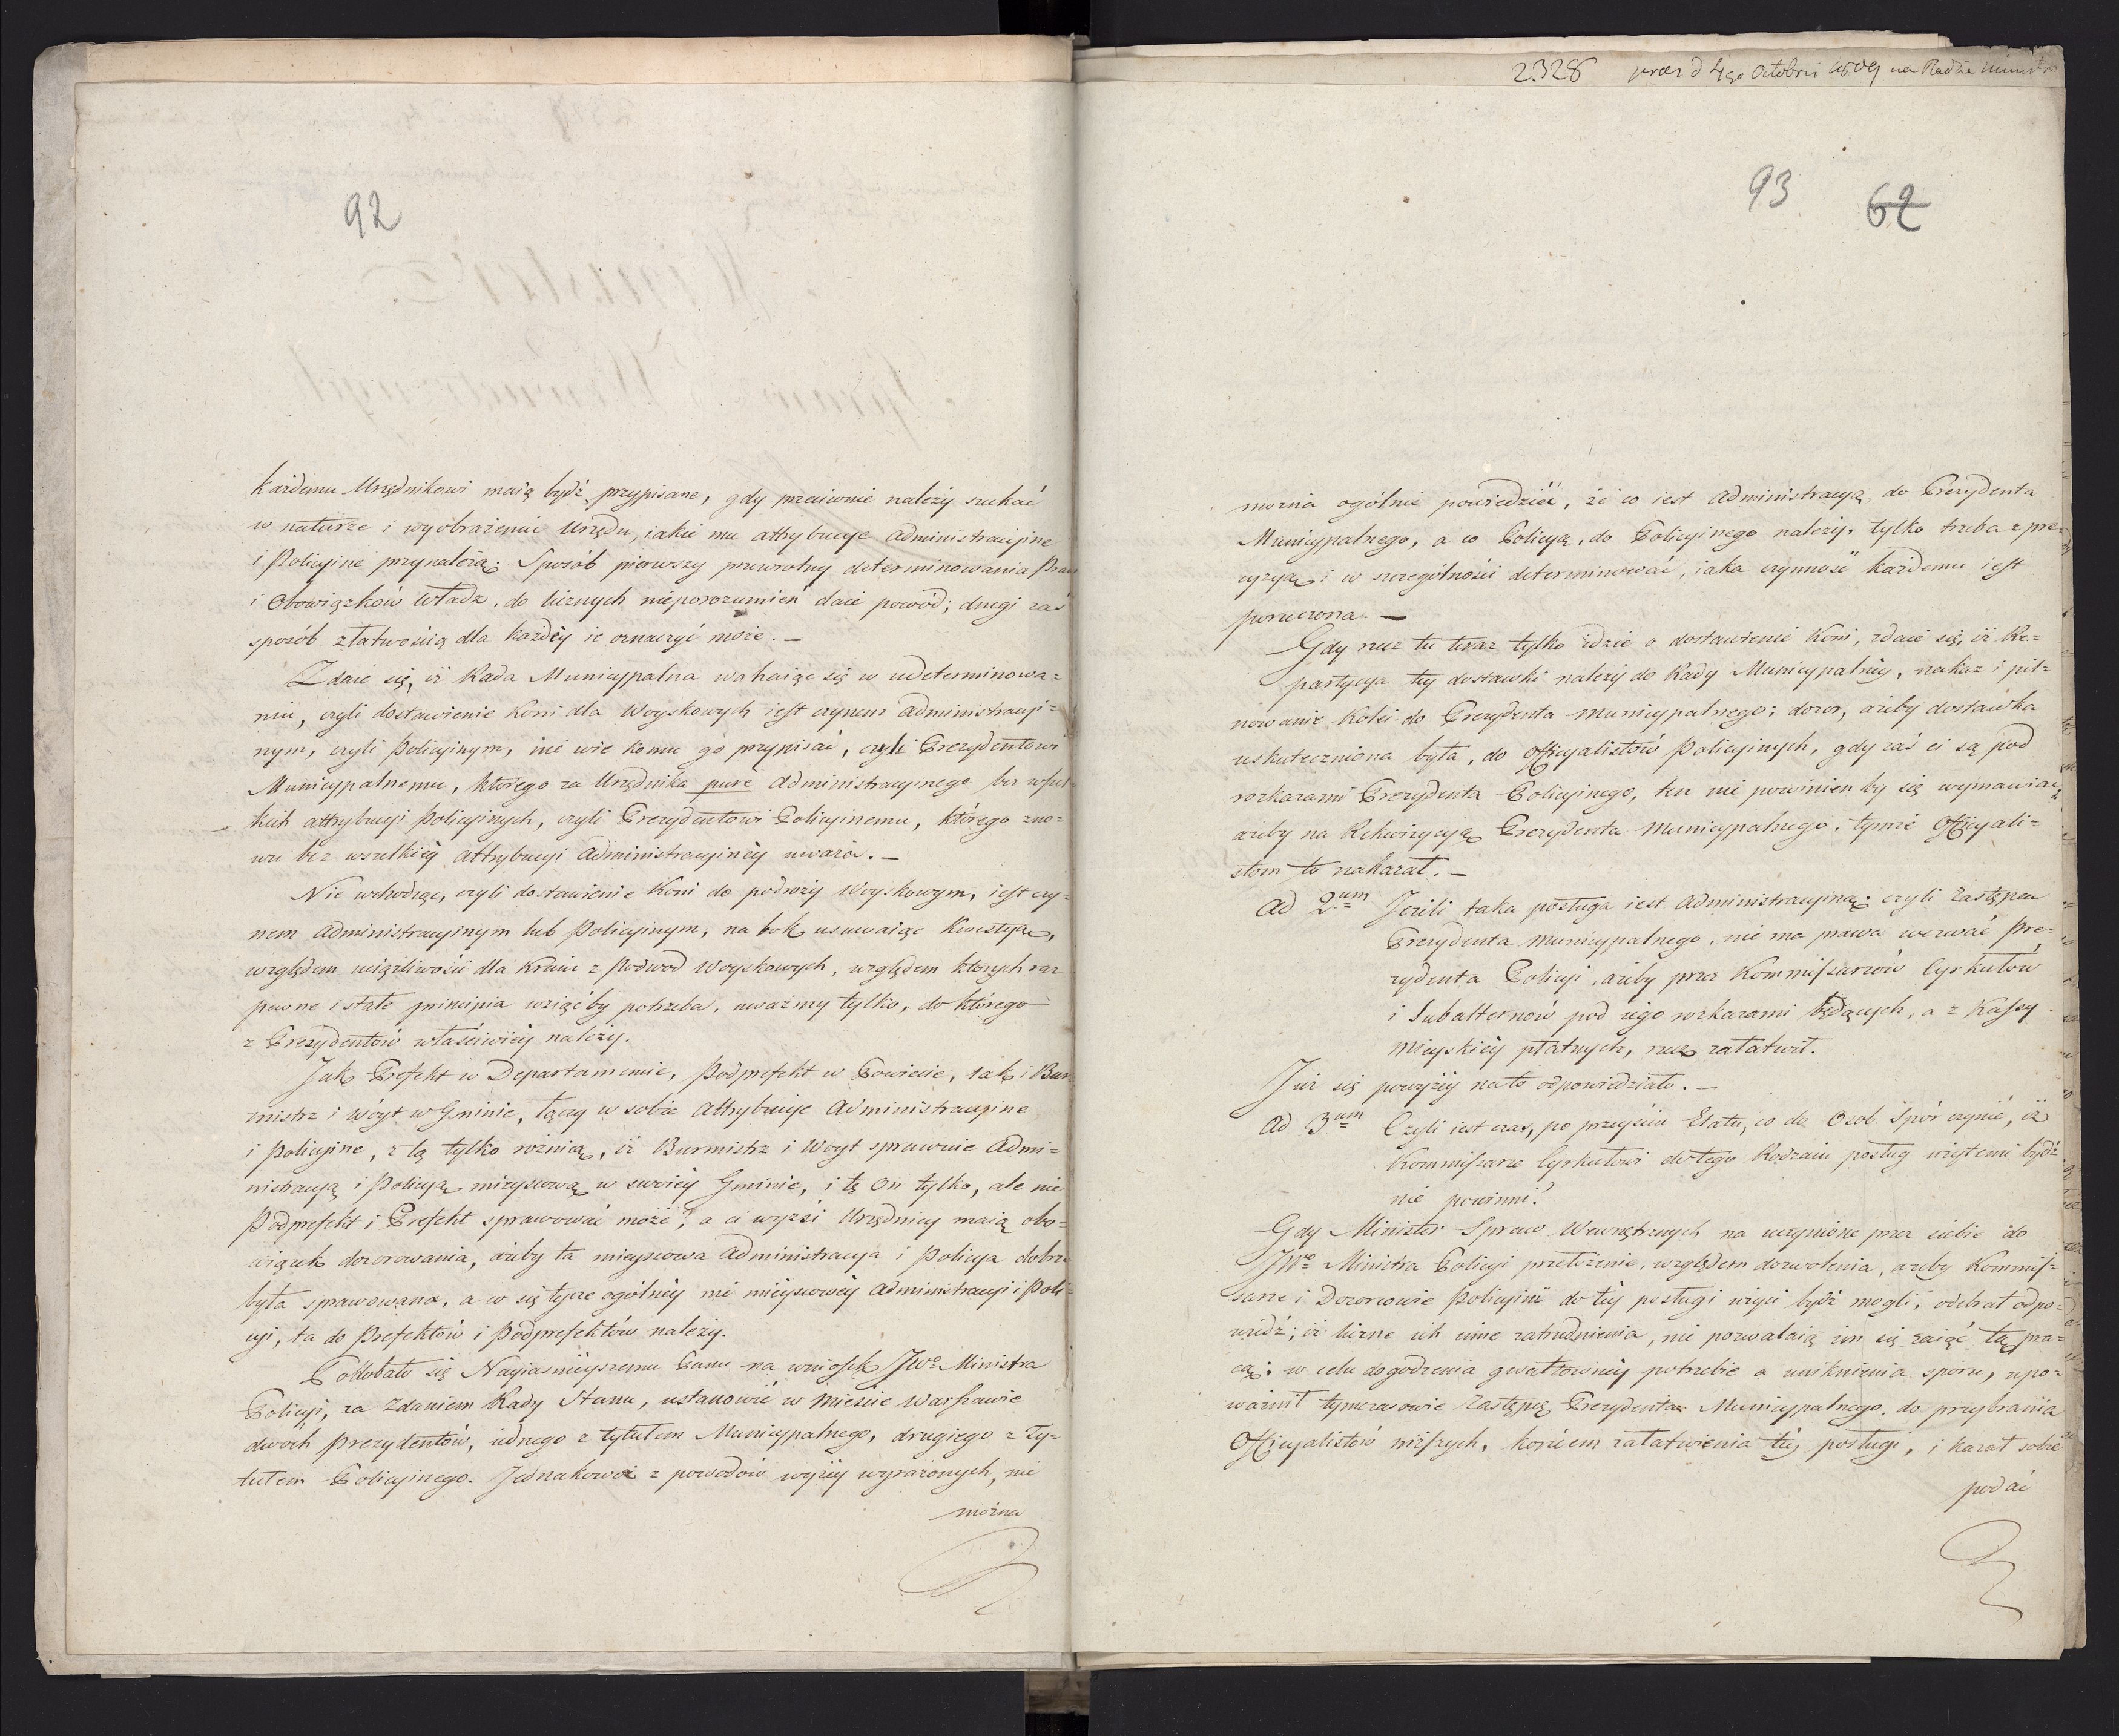 92
każdemu Urzędnikowi maią bydź przypisane, gdy przeciwnie należy szukać
w naturze i wyobrażeniu Urzędu, iakie mu attrybucye administracyine
i Policyine przynależą. Sposób pierwszy przewrotny determinowania Praw
i Obowiązków Władz, do licznych nieporozumień daie powód; drugi zaś
sposób z łatwością dla każdéy ie oznaczyć może. —
Zdaie się, iż Rada Municypalna wahaiąc się w udeterminowa=
niu, czyli dostawienie koni dla Woyskowych iest czynem administracyi=
nym, czyli Policyinym, nie wie komu go przypisać, czyli Prezydentowi
Municypalnemu, którego za Urzędnika puré administracyinego bez wszel=
kich attrybucyi Policyinych, czyli Prezydentowi Policyinemu, którego zno=
wu bez wszelkiéy attrybucyi administracyinéy uważa. —
Nie wchodząc, czyli dostawienie Koni do podwozy Woyskowym, iest czy=
nem administracyinym lub Policyinym, na bok usuwaiąc Kwestyą,
względem uciążliwości dla Kraiu z Podwod Woyskowych, względem których raz
pewne i stałe principia wziąćby potrzeba, uważmy tylko, do którego
z Prezydentów właściwiéy należy.
Jak Prefekt w Departamencie, Podprefekt w Powiecie, tak i Bur=
mistrz i Wóyt w Gminie, łączy w sobie attrybucye administracyine
i Policyine, z tą tylko różnicą, iż Burmistrz i Woyt sprawuie admi=
nistracyą i Policyą mieyscową w swoiéy Gminie, i tę on tylko, ale nie
Podprefekt i Prefekt sprawować może; a ci wyżsi Urzędnicy maią obo=
wiązek dozorowania, ażeby ta mieyscowa administracya i Policya dobrze
była sprawowana, a co się tycze ogólnéy nie mieyscowéy administracyi i Poli=
cyi, ta do Prefektów i Podprefektów należy.
Podobało się Nayiaśnieyszemu Panu na wniosek JWo Ministra
Policyi, za zdaniem Rady Stanu, ustanowić w mieście Warszawie
dwóch Prezydentów, iednego z tytułem Municypalnego, drugiego z Ty=
tułem Policyinego. Jednakowoż z powodów wyżéy wyrażonych, nie
można
2328 praes d 4go Octobris 1809 na Radzie Ministro
93 62
można ogólnie powiedzieć, że co iest administracyą, do Prezydenta
Municypalnego, a co Policyą, do Policyinego należy, tylko trzeba z pre=
cyzyą i w szczególności determinować, iaka czynność każdemu iest
poruczona. —
Gdy rzecz tu teraz tylko idzie o dostawienie Koni, zdaie się, iż Re=
partycya téy dostawki należy do Rady Municypalnéy, nakaz i pil=
nowanie kolei do Prezydenta Municypalnego; dozor, ażeby dostawka
uskuteczniona była, do Officyalistów Policyinych, gdy zaś ci są pod
rozkazami Prezydenta Policyinego, ten nie powinien by się wymawiać,
ażeby na Rekwizycyą Prezydenta Municypalnego, tymże Officyali=
stom to nakazał. —
Ad 2um Jeżeli taka posługa iest administracyiną; czyli Zastępca
Prezydenta Municypalnego, nie ma prawa wezwać Pre=
zydenta Policyi, ażeby przez Kommissarzów Cyrkułow
i Subalternów pod iego rozkazami będących, a z Kassy
Mieyskiéy płatnych, rzecz załatwił.
Już się powyżéy na to odpowiedziało. —
Ad 3um Czyli iest czas, po przyięciu Etatu, co do Osob Spór czynić, iż
Kommissarze Cyrkułowi do tego Rodzaiu posług użytemi bydź
nie powinni?
Gdy Minister Spraw Wewnętrznych na uczynione przez siebie do
JWo Ministra Policyi przełożenie, względem dozwolenia, ażeby Kommis=
sarze i Dozorcowie Policyini do téy posługi użyci bydź mogli, odebrał odpo=
wiedź; iż liczne ich inne zatrudnienia, nie pozwalaią im się zaiąć tą pra=
cą; w celu dogodzenia gwałtownéy potrzebie a uniknienia sporu, upo=
ważnił tymczasowie Zastępcę Prezydenta Municypalnego, do przybrania
Officyalistów niższych, końcem załatwienia téy posługi, i kazał sobie
podać